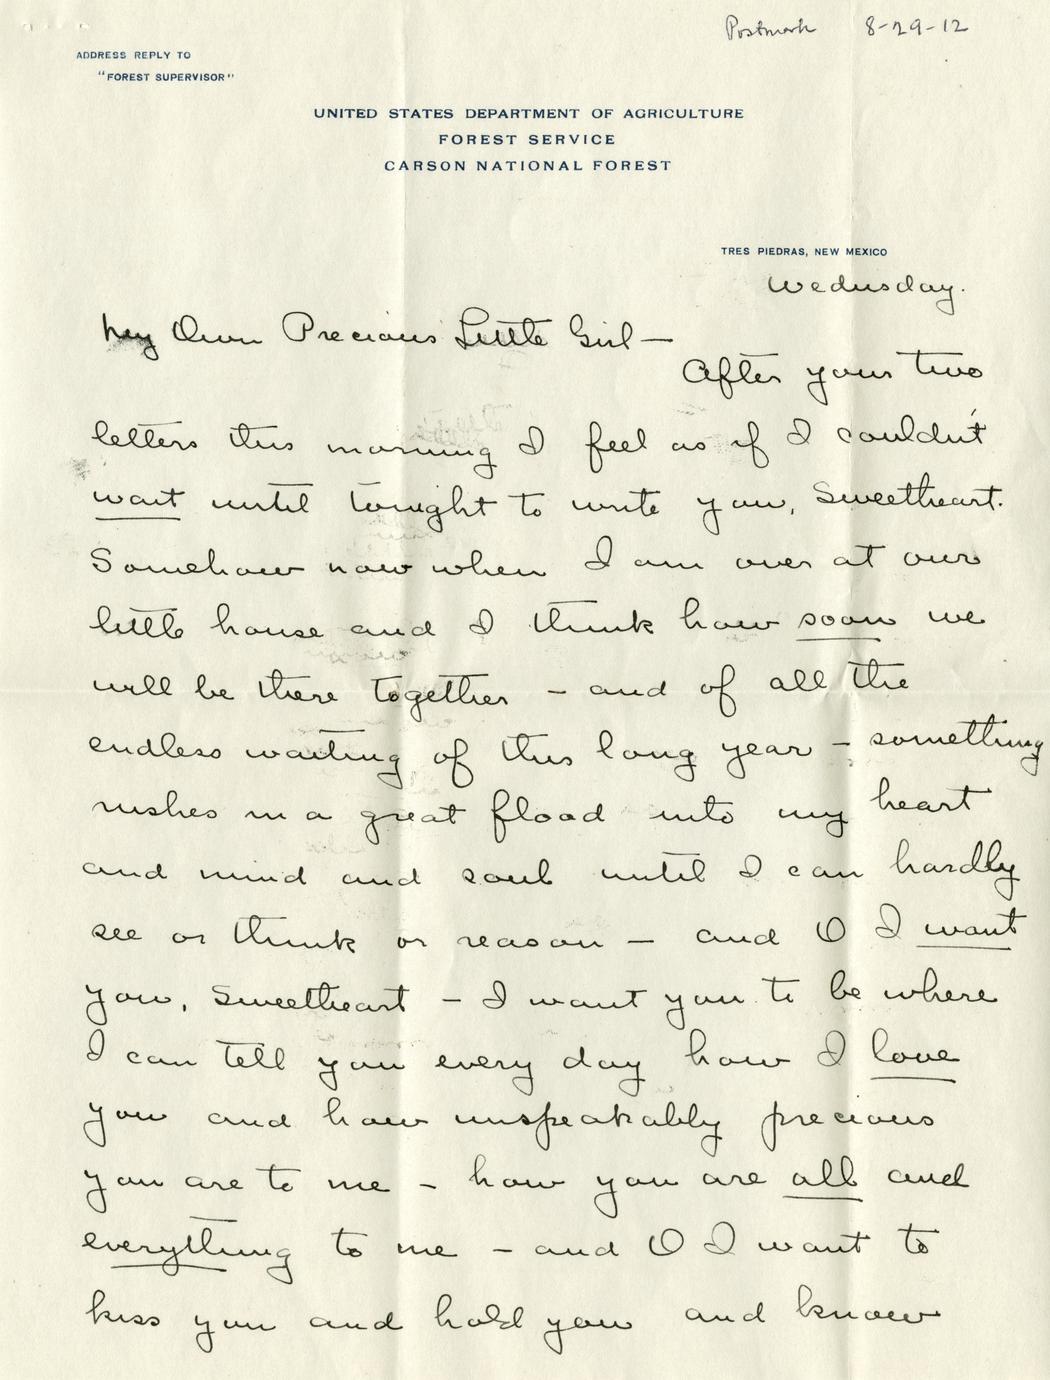 Postmark 8-29-12
ADDRESS REPLY TO
"FOREST SUPERVISOR"
UNITED STATES DEPARTMENT OF AGRICULTURE
FOREST SERVICE
CARSON NATIONAL FOREST
TRES PIEDRAS, NEW MEXICO
Wednesday.
My Own Precious Little Girl —
After your two
letters this morning I feel as if I couldn't
wait until tonight to write you, Sweetheart.
Somehow now when I am over at our
little house and I think how soon we
will be there together – and of all the
endless waiting of this long year – something
rushes in a great flood into my heart
and mind and soul until I can hardly
see or think or reason – and O I want
you, Sweetheart – I want you to be where
I can tell you every day how I love
you and how unspeakably precious
you are to me – how you are all and
everything to me – and O I want to
kiss you and hold you and know